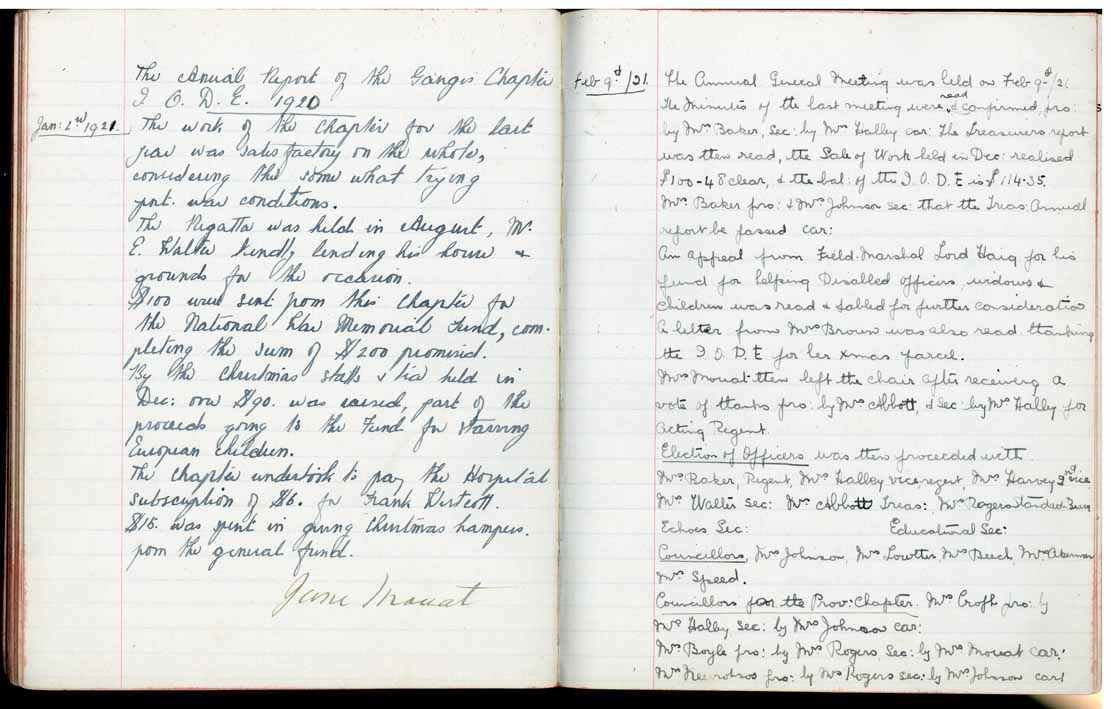 The Annual Report of the Ganges Chapter
I O. D. E. 1920
Jan: 2nd 1921.
The work of the Chapter for the last
year was satisfactory on the whole,
considering the some what trying
post. war conditions.
The Regatta was held in August, Mr.
E. Walter kindly lending his house &
grounds for the occasion.
$100 were sent from this Chapter for
the National War Memorial Fund, com-
pleting the sum of $200 promised.
By the Christmas stall & tea held in
Dec: over $90. was raised, part of the
proceeds going to the Fund for starving
European children.
The Chapter undertook to pay the Hospital
subscription of $6. for Frank
$15. was spent in giving Christmas hampers.
from the general fund.
June Mouat
Feb 9d /21.
The Annual General Meeting was held on Feb 9d/21
The Minutes of the last meeting were read & confirmed, pro:
by Mrs Baker, sec: by Mrs Halley car: The Treasurers report
was then read, the Sale of Work held in Dec: realised
$100-48 clear, & the bal: of the I. O. D. E is $114.35.
Mrs Baker pro: & Mrs Johnson sec: that the Treas: Annual
report be passed car:
An appeal from Field. Marshal Lord Haig for his
fund for helping Disabled Officers, widows &
children was read & tabled for further consideration
A letter from Mrs Brown was also read thanking
the I. O. D. E for her xmas parcel.
Mrs Mouat then left the chair after receiving a
vote of thanks pro: by Mrs Abbott, & sec: by Mrs Halley for
acting Regent
Election of Officers was then proceeded with.
Mrs Baker, Regent, Mrs Halley vice regent, Mrs Harvey 2nd vice
Mrs Walter sec: Mrs Abbott Treas: Mrs Rogers Standard-Bearer
Echoes Sec: Educational Sec:
Councillors, Mrs Johnson, Mrs Lowther, Mrs Beech, Mrs Akerman
Mrs Speed.
Councillors for the Prov: Chapter. Mrs Croft pro: by
Mrs Halley sec: by Mrs Johnson car:
Mrs Boyle pro: by Mrs Rogers, Sec: by Mrs Mouat car:
Mrs pro: by Mrs Rogers sec: by Mrs Johnson car: